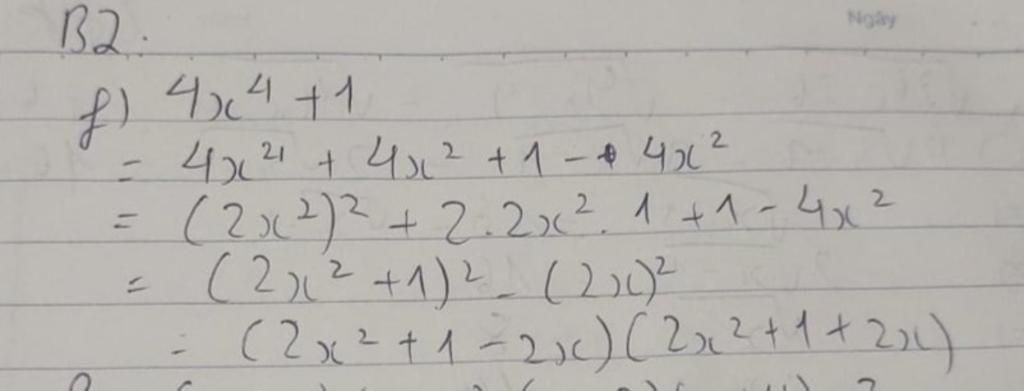 Ngày
B2.
f) 4x⁴ + 1
= 4x⁴ + 4x² + 1 - 4x²
= (2x²)² + 2.2x².1 + 1 - 4x²
= (2x² + 1)² - (2x)²
= (2x² + 1 - 2x)(2x² + 1 + 2x)